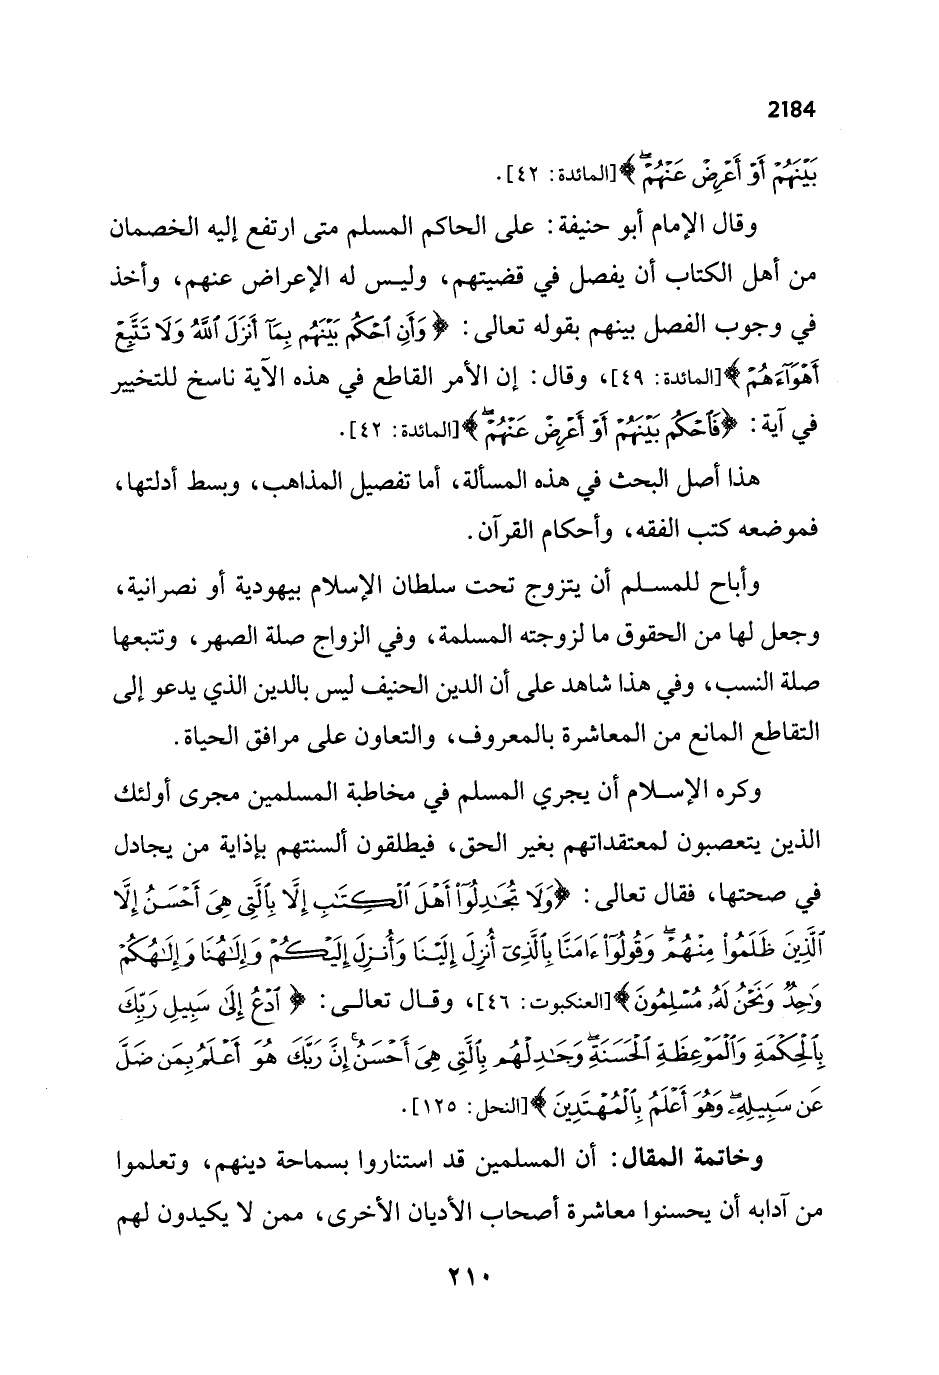 2184
بَيْنَهُمْ أَوْ أَعْرِضْ عَنْهُمْ ۖ ﴾[المائدة: ٤٢].
وقال الإمام أبو حنيفة: على الحاكم المسلم متى ارتفع إليه الخصمان
من أهل الكتاب أن يفصل في قضيتهم، وليس له الإعراض عنهم، وأخذ
في وجوب الفصل بينهم بقوله تعالى: ﴿ وَأَنِ ٱحْكُم بَيْنَهُم بِمَآ أَنزَلَ ٱللَّهُ وَلَا تَتَّبِعْ
أَهْوَآءَهُمْ ﴾[المائدة: ٤٩]، وقال: إن الأمر القاطع في هذه الآية ناسخ للتخيير
في آية: ﴿فَٱحْكُم بَيْنَهُمْ أَوْ أَعْرِضْ عَنْهُمْ ۖ ﴾[المائدة: ٤٢].
هذا أصل البحث في هذه المسألة، أما تفصيل المذاهب، وبسط أدلتها،
فموضعه كتب الفقه، وأحكام القرآن.
وأباح للمسلم أن يتزوج تحت سلطان الإسلام بيهودية أو نصرانية،
وجعل لها من الحقوق ما لزوجته المسلمة، وفي الزواج صلة الصهر، وتتبعها
صلة النسب، وفي هذا شاهد على أن الدين الحنيف ليس بالدين الذي يدعو إلى
التقاطع المانع من المعاشرة بالمعروف، والتعاون على مرافق الحياة.
وكره الإسلام أن يجري المسلم في مخاطبة المسلمين مجرى أولئك
الذين يتعصبون لمعتقداتهم بغير الحق، فيطلقون ألسنتهم بإذاية من يجادل
في صحتها، فقال تعالى: ﴿وَلَا تُجَٰدِلُوٓا۟ أَهْلَ ٱلْكِتَٰبِ إِلَّا بِٱلَّتِى هِىَ أَحْسَنُ إِلَّا
ٱلَّذِينَ ظَلَمُوا۟ مِنْهُمْ ۖ وَقُولُوٓا۟ ءَامَنَّا بِٱلَّذِىٓ أُنزِلَ إِلَيْنَا وَأُنزِلَ إِلَيْكُمْ وَإِلَٰهُنَا وَإِلَٰهُكُمْ
وَٰحِدٌ وَنَحْنُ لَهُۥ مُسْلِمُونَ ﴾[العنكبوت: ٤٦]، وقال تعالى: ﴿ ٱدْعُ إِلَىٰ سَبِيلِ رَبِّكَ
بِٱلْحِكْمَةِ وَٱلْمَوْعِظَةِ ٱلْحَسَنَةِ ۖ وَجَٰدِلْهُم بِٱلَّتِى هِىَ أَحْسَنُ ۚ إِنَّ رَبَّكَ هُوَ أَعْلَمُ بِمَن ضَلَّ
عَن سَبِيلِهِۦ ۖ وَهُوَ أَعْلَمُ بِٱلْمُهْتَدِينَ ﴾[النحل: ١٢٥].
وخاتمة المقال: أن المسلمين قد استناروا بسماحة دينهم، وتعلموا
من آدابه أن يحسنوا معاشرة أصحاب الأديان الأخرى، ممن لا يكيدون لهم
٢١٠